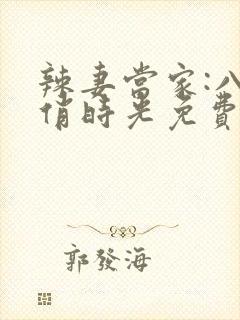 辣妻當家:八
俏時光免費
郭發海